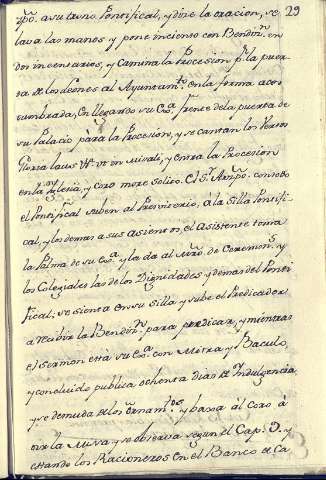 29
zpo. a su trono Pontifical, y dize la oracion, se
lava las manos y pone inciento con Bendin. en
dos incensarios, y Camina la Procesion pr. la puer
ta de los leones al Ayuntamto. en la forma acos
tumbrada, En llegando su Exa. frente de la puerta de
su Palacio pàra la Procesion, y se cantan los Versos
Gloria laus Vt. ut in Misali, y entra la Procesion
en la Yglesia, y coro more solito. El Sr. Arzpo. con sºlo
el Pontifical suben al Presviterio, a la Silla Pontifi
cal, y los demas a sus asientos, el Asistente toma
la Palma de su Exa. y la da al Mro. de Ceremons. y
los Colegiales las de los Dignidades y demas del Ponti
fical; se sienta en su Silla y sube el Predicador
a recibir la Bendin. para predicar, y mientras
el Sermon està su Exa. con Mitra y Baculo,
y concluido publica ochenta dias de Yndulgencia,
y se desnuda de los Ornamtos. y baxa al Coro à
oir la Missa y se observa segun el Cap. 5. y
estando los Racioneros en el Banco de Ca